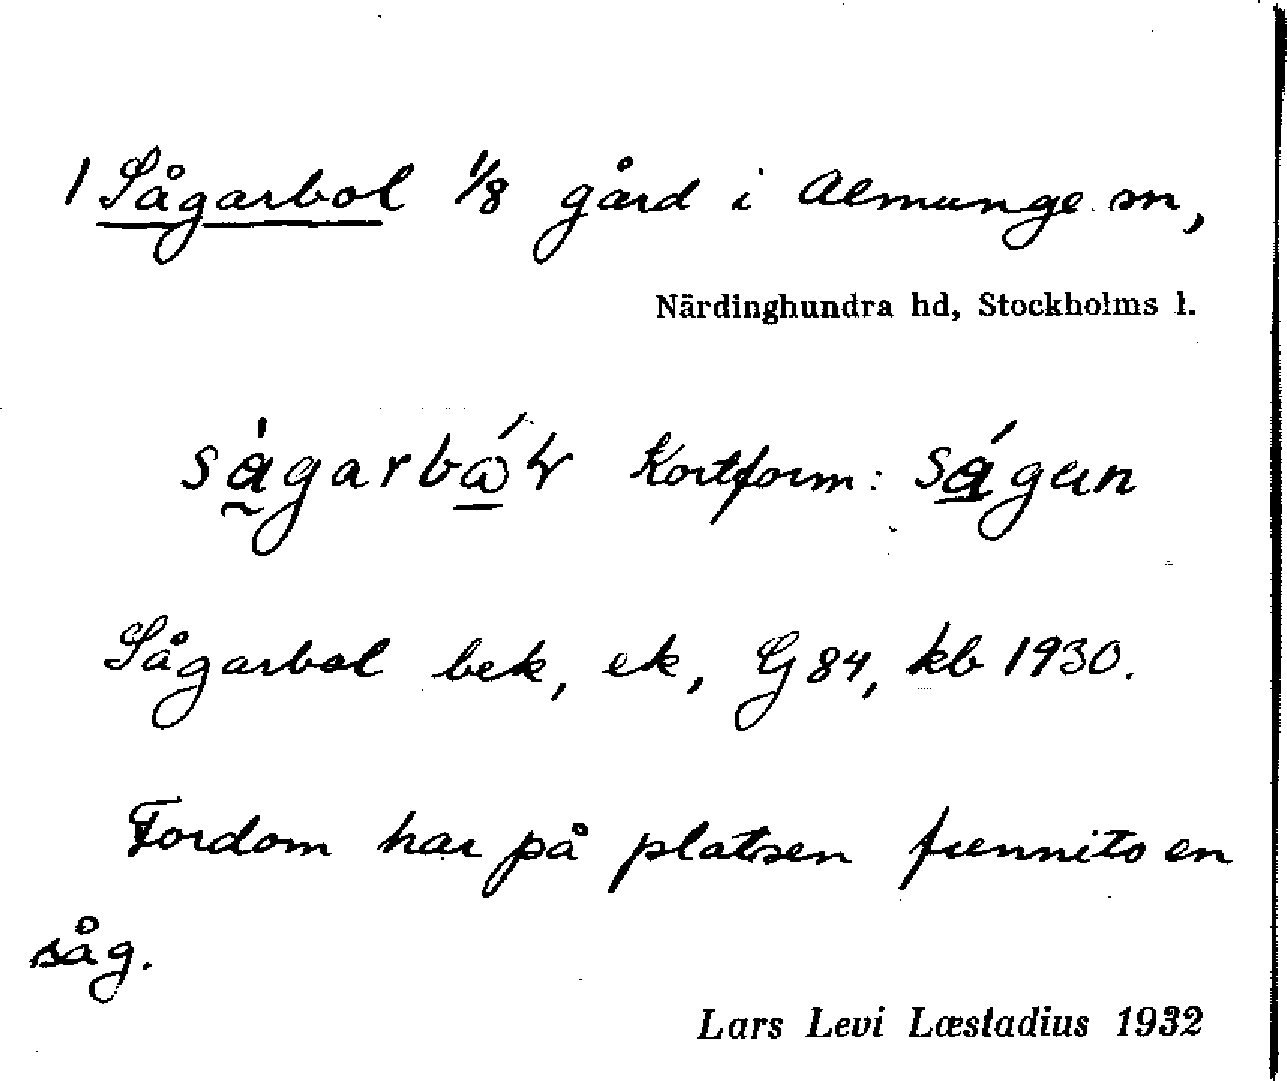 1 Sågarbol 1/8 gård i Almunge sn,
Närdinghundra hd, Stockholms l.
Kortform:
Sågarbol bek, ek, G 84, kb 1930.
Fordom har på platsen funnits en
såg.
Lars Levi Læstadius 1932